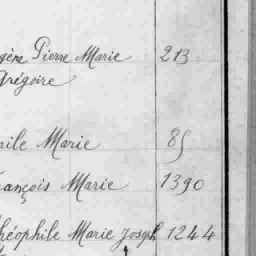 Pierre Marie 213
Grégoire
Marie 85
François Marie 1390
Théophile Marie Joseph 1244